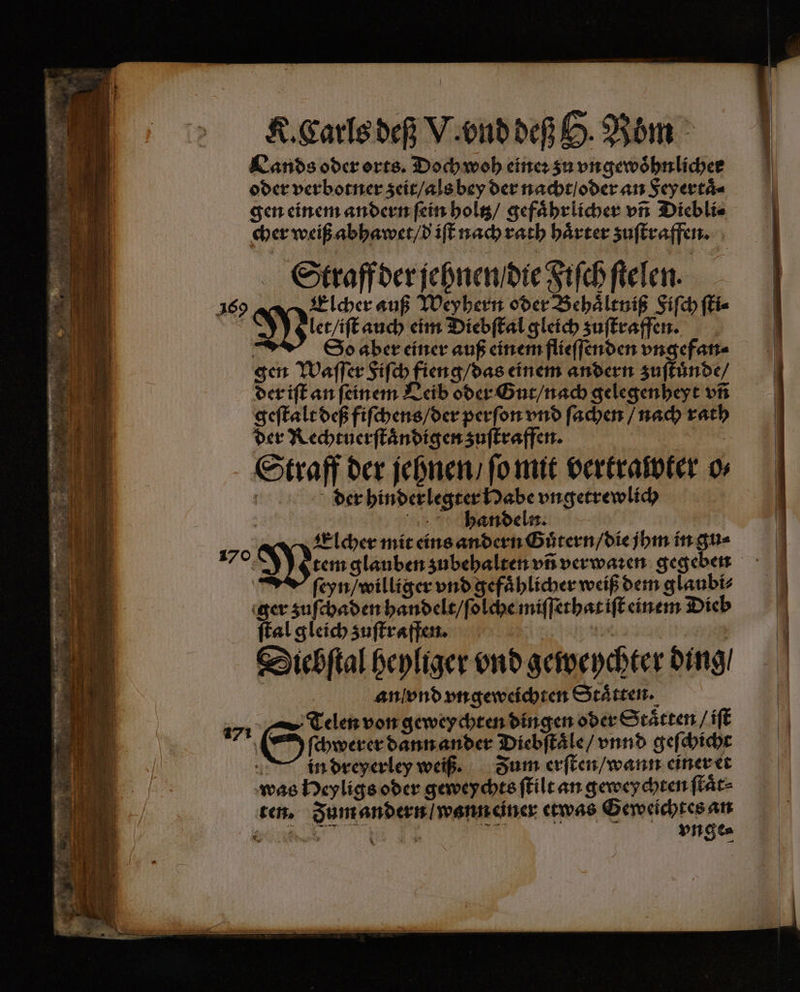 K. Carls deß V. vnd deß H. Röm
Lands oder orts. Doch woh einer zu vngewoͤhnlicher
oder verbotner zeit/als bey der nacht/oder an Feyertaͤ⸗
gen einem andern ſein holtz/ gefaͤhrlicher vñ Diebli⸗
cher weiß abhawet/d iſt nach rath haͤrter zuſtraffen.
Straff der jehnen/die Fiſch ſtelen.
169 WElcher auß Weyhern oder Behaͤltniß Fiſch ſti⸗
let/iſt auch eim Diebſtal gleich zuſtraffen.
So aber einer auß einem flieſſenden vngefan⸗
gen Waſſer Fiſch fieng/das einem andern zuſtuͤnde/
der iſt an ſeinem Leib oder Gut/nach gelegenheyt vñ
geſtalt deß fiſchens/der perſon vnd ſachen / nach rath
der Rechtuerſtaͤndigen zuſtraffen.
Straff der jehnen/ ſo mit vertrawter o⸗
der hinderlegter Habe vngetrewlich
handeln.
170 WElcher mit eins andern Guͤtern/die jhm in gu⸗
tem glauben zubehalten vñ verwaren gegeben
ſeyn/williger vnd gefaͤhlicher weiß dem glaubi⸗
ger zuſchaden handelt/ſolche miſſethat iſt einem Dieb
ſtal gleich zuſtraffen.
Diebſtal heyliger vnd geweychter ding/
an/vnd vngeweichten Staͤtten.
171 STelen von geweychten dingen oder Staͤtten / iſt
ſchwerer dann ander Diebſtaͤle/ vnnd geſchicht
in dreyerley weiß. Zum erſten/wann einer et
was Heyligs oder geweychts ſtilt an geweychten ſtaͤt⸗
ten. Zum andern/wann einer etwas Geweichtes an
vnge⸗